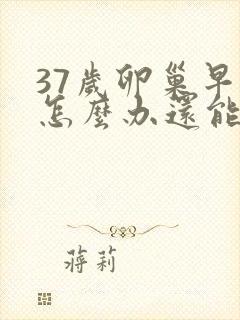 37歲卵巢早
怎麼办還能
蔣莉